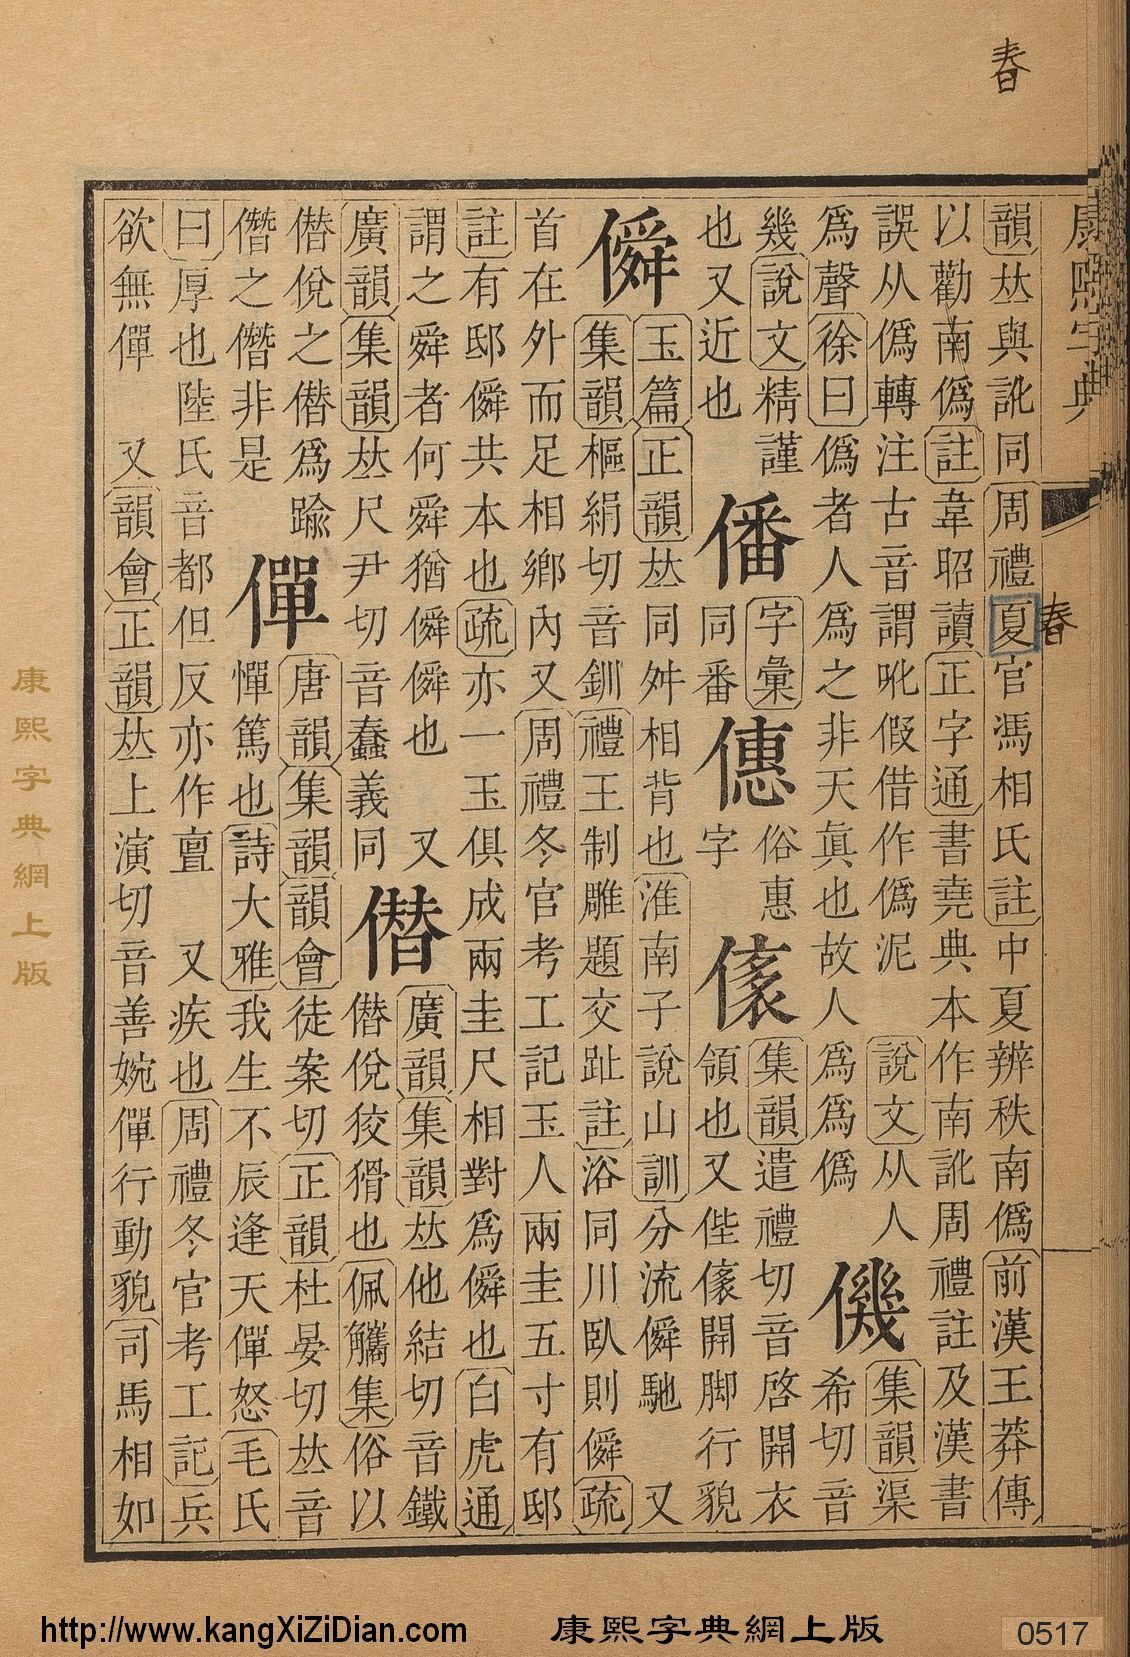 春
康熙字典
春
韻𠀤與訛同周禮夏官馮相氏註中夏辨秩南僞前漢王莽傳
以勸南僞註韋昭讀正字通書堯典本作南訛周禮註及漢書
誤从僞轉注古音謂吪假借作僞泥 說文从人
爲聲徐曰僞者人爲之非天眞也故人爲爲僞
僟
集韻渠
希切音
幾說文精謹
也又近也
僠
字彙
同番
僡
俗惠
字
集韻遣禮切音啓開衣
領也又開脚行貌
僢
玉篇正韻𠀤同舛相背也淮南子說山訓分流僢馳 又
集韻樞絹切音釧禮王制雕題交趾註浴同川臥則僢疏
首在外而足相鄉內又周禮冬官考工記玉人兩圭五寸有邸
註有邸僢共本也疏亦一玉俱成兩圭尺相對爲僢也白虎通
謂之舜者何舜猶僢僢也 又
廣韻集韻𠀤尺尹切音蠢義同
僣
廣韻集韻𠀤他結切音鐵
僣侻狡猾也佩觿集俗以
僣侻之僣爲踰
僭之僭非是
僤
唐韻集韻韻會徒案切正韻杜晏切𠀤音
憚篤也詩大雅我生不辰逢天僤怒毛氏
曰厚也陸氏音都但反亦作亶 又疾也周禮冬官考工記兵
欲無僤 又韻會正韻𠀤上演切音善婉僤行動貌司馬相如
康熙字典網上版
http://www.kangXiZiDian.com 康熙字典網上版 0517